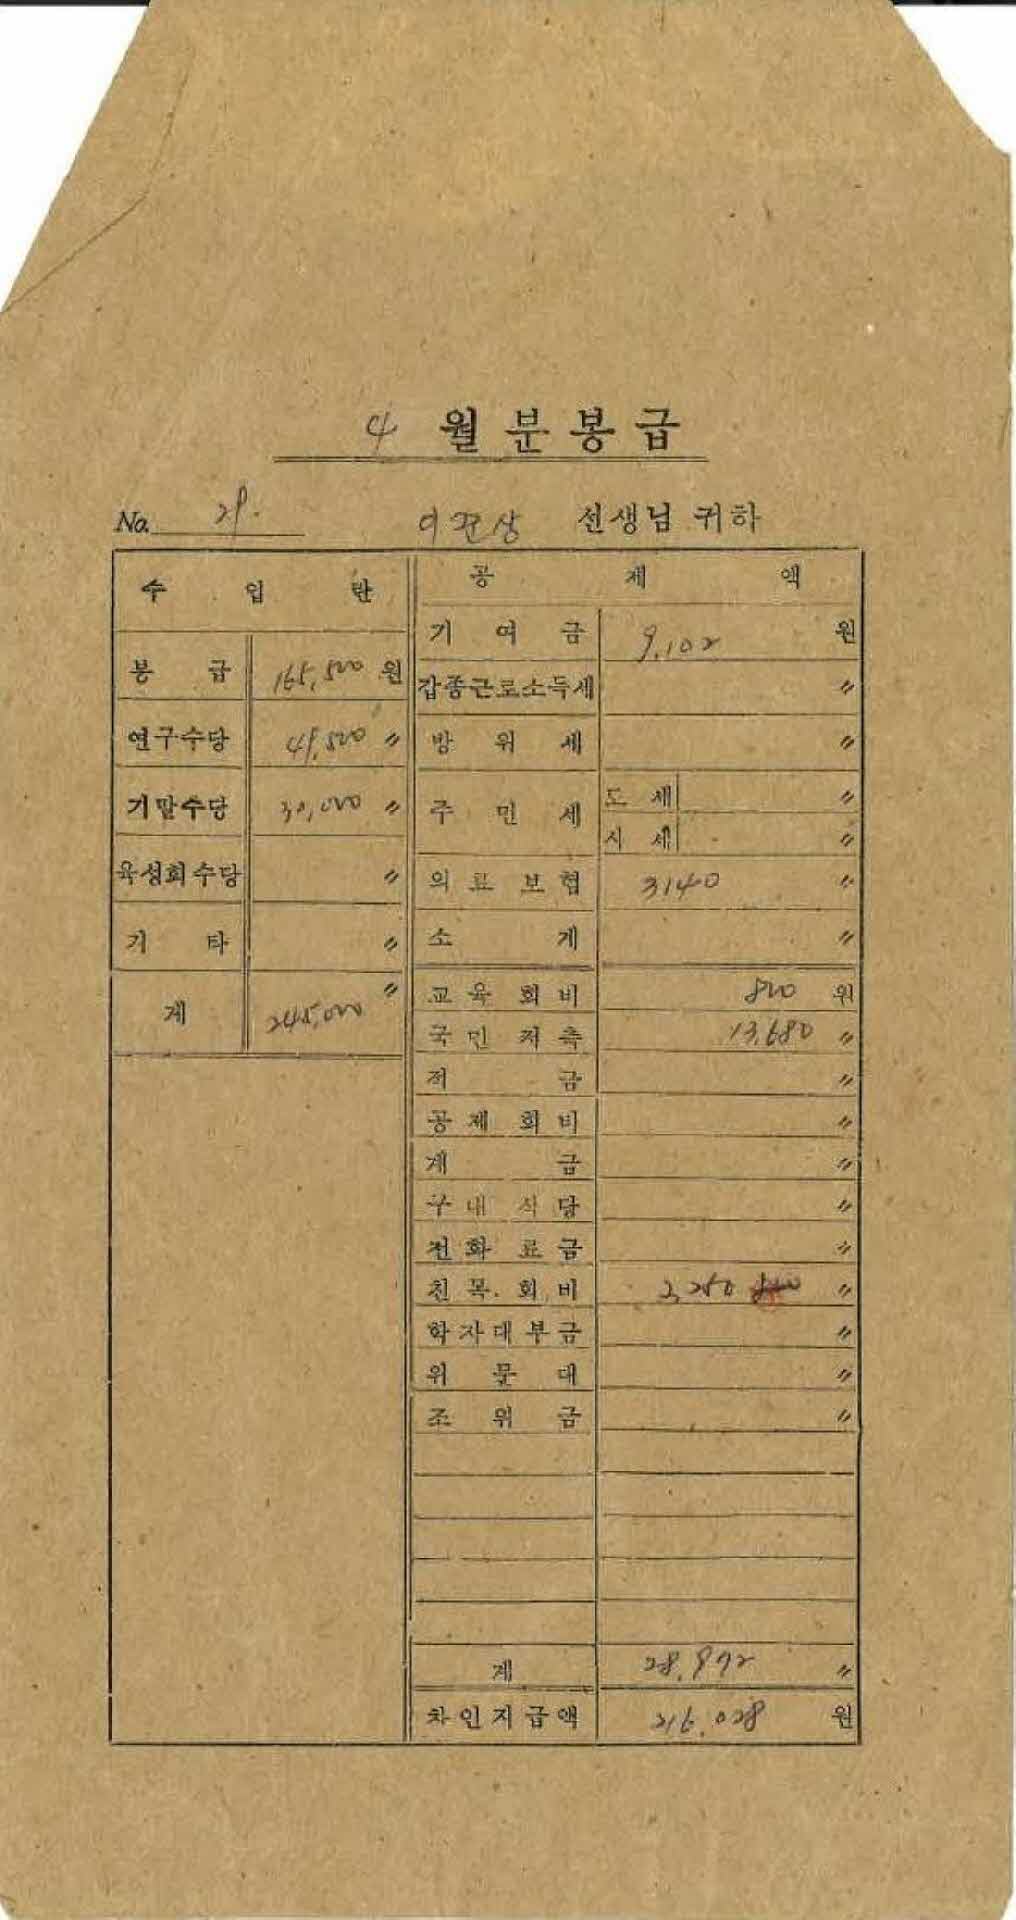 4 월분봉급
No. 29. 선생님 귀하
수 입 란
봉 급 165,500 원
연구수당 49,500 〃
기말수당 30,000 〃
육성회수당 〃
기 타 〃
계 245,000 〃
공 제 액
기 여 금 9,102 원
갑종근로소득세 〃
방 위 세 〃
주 민 세 도 세 〃
시 세 〃
의 료 보 험 3140 〃
소 계 〃
교 육 회 비 800 원
국 민 저 축 13,680 〃
적 금 〃
공 제 회 비 〃
계 금 〃
구 내 식 당 〃
전 화 료 금 〃
친 목 회 비 2,250 〃
학 자 대 부 금 〃
위 문 대 〃
조 위 금 〃
계 28,972 〃
차 인 지 급 액 216,028 원